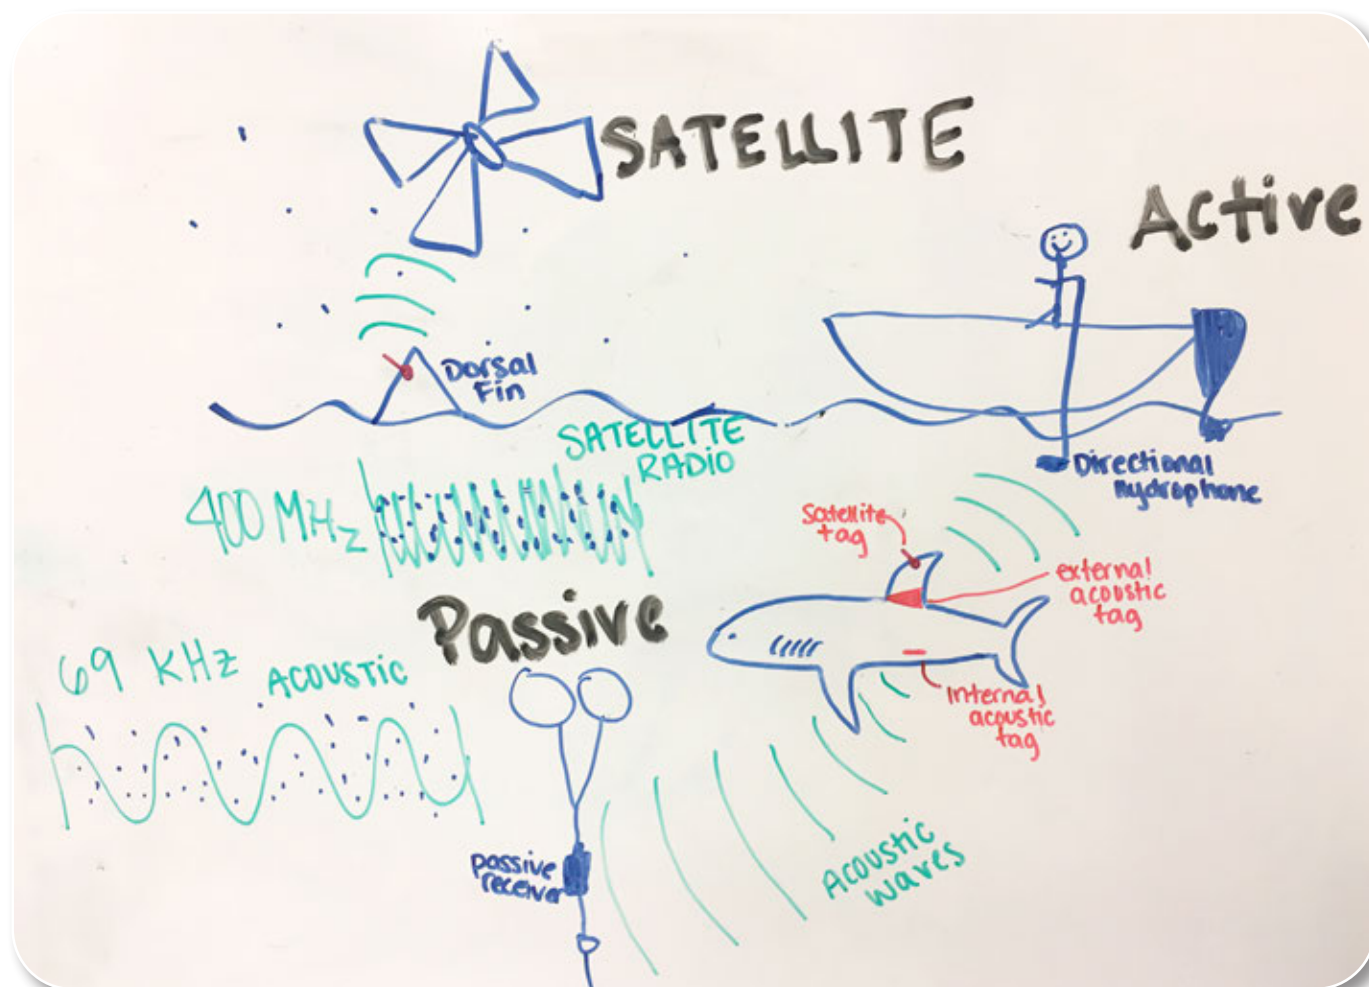 SATELLITE
Active
Dorsal
Fin
SATELLITE
RADIO
400 MHz
Directional
hydrophone
Satellite
tag
external
acoustic
tag
Passive
69 KHz
ACOUSTIC
Internal
acoustic
tag
passive
receiver
Acoustic
waves